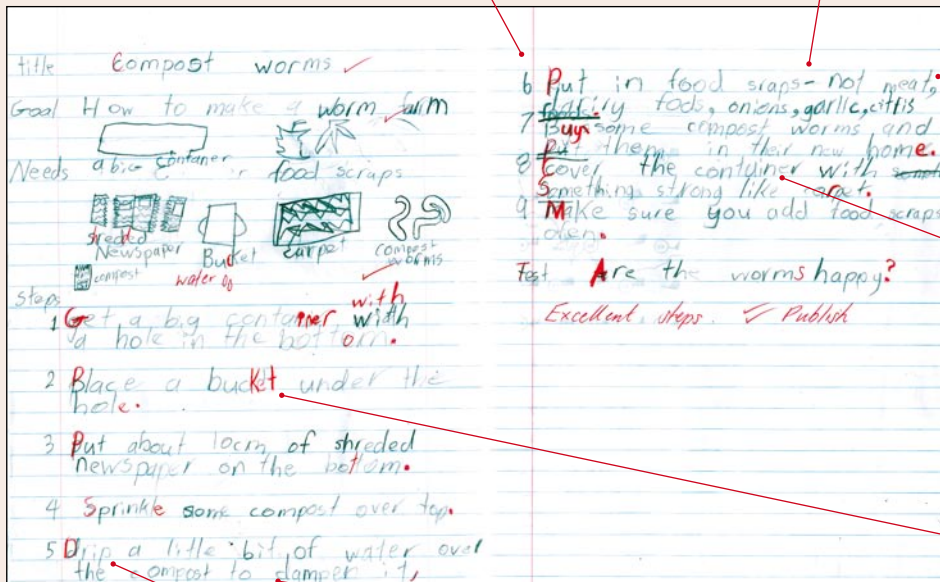 title Compost worms
Goal How to make a worm farm
a big contaner
Needs food scraps
shreded
Newspaper
Bucket
carpet
compost
worms
compost
water
Steps
with
1 Get a big container width
a hole in the bottom.
2 Place a bucket under the
hole.
3 Put about 10cm of shreded
newspaper on the bottom.
4 Sprinkle some compost over top.
5 Drip a litle bit of water over
the compost to dampen it,
6 Put in food sraps - not meat,
dairiy fods, onions, garlic, citris
foods.
7 Buy some compost worms and
put them in their new home.
8 Cover the container with
Something strong like carpet.
9 Make sure you add food scraps
ofen.
Test Are the worms happy?
Excellent steps. Publish